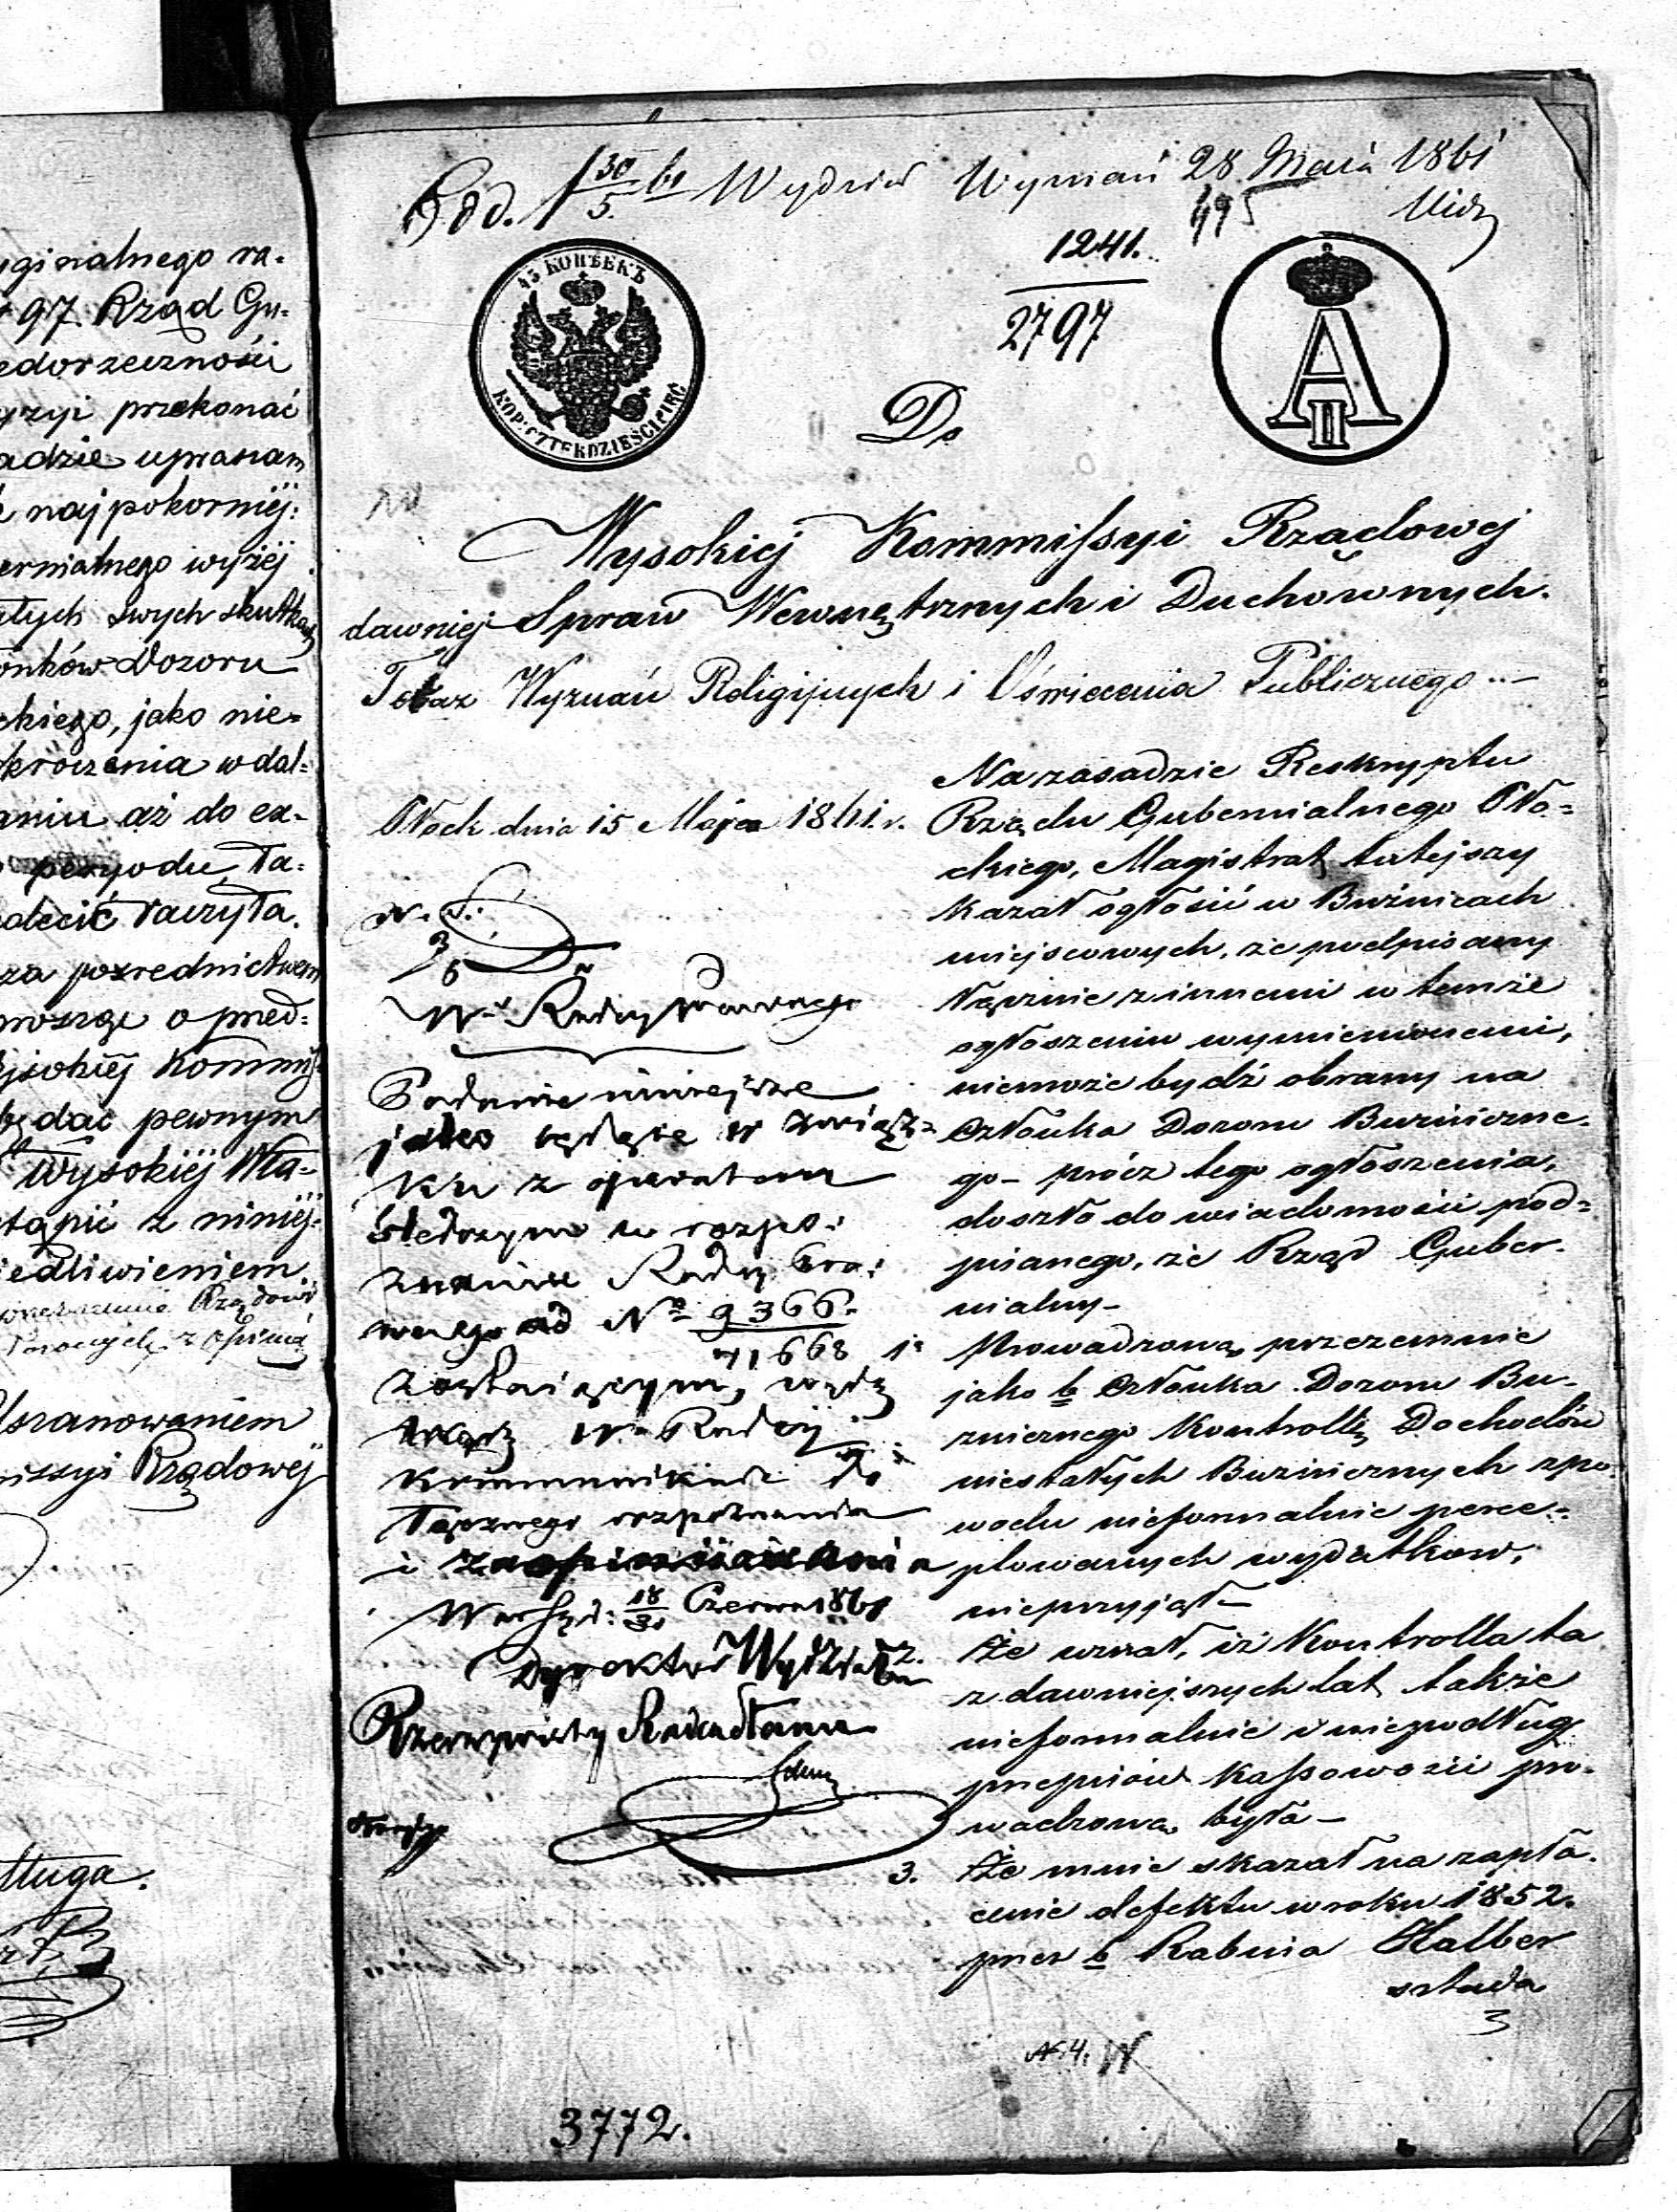 yginalnego ra-
97. Rząd Gu-
edorzeczności
yzyi przekonać
adzie upraszam
najpokorniéj
ernialnego wyżéj
tych swych skutkach
onków Dozoru
ckiego, jako nie-
kroczenia w dal-
aniu aż do ex-
peryodu, Ta-
olecić raczyła.
za pośrednictwem
proszę o pred-
ysokiéj Kommis
będąc pewnym
Wysokiéj Wła-
tąpić z niniéj-
iedliwieniem
Uszanowaniem
missyi Rządowéj
sługa.
Pod. 30/5 61 Wydział Wyznań 28 Maia 1861
495
1241.
2797
45 КОПѢЕКЪ
KOP: CZTERDZIEŚCI PIĘĆ
A II
Do
Wysokiej Kommissyi Rządowej
dawniej Spraw Wewnętrznych i Duchownych.
Teraz Wyznań Religijnych i Oświecenia Publicznego
Płock dnia 15 Maja 1861. r.
Podanie niniejsze
jako będące w związ-
ku z operatem
śledczym w rozpo-
znaniu Rady Pra-
wnego ad No 9366.
71668
zostaiącym,
Rady
kommunikuie do
łącznego rozpoznania
i zaopiniowania
Czerwca 1861
Dyrektor Wydziału
Rzeczywisty Radca Stanu
Na zasadzie Reskryptu
Rządu Gubernialnego Pło-
ckiego, Magistrat tutejszy
kazał ogłosić w Bużnicach
miejscowych, że podpisany
łącznie z innemi w temże
ogłoszeniu wymienionemi,
niemoże bydź obrany na
członka Dozoru Bużniczne-
go – prócz tego ogłoszenia,
doszło do wiadomości pod-
pisanego, że Rząd Guber-
nialny –
1. Prowadzoną przezemnie
jako b członka Dozoru Bu-
żnicznego Kontrollę Dochodów
niestałych Bużnicznych zpo-
wodu nieformalnie perce-
ptowanych wydatkow,
nieprzyjął –
2. Że uznał, iż Kontrolla ta
z dawniejszych lat także
nieformalnie i niepodług
przepisów Kassowości pro-
wadzoną była –
3. Że mnie skazał na zapła-
cenie defektu w roku 1852.
przez b Rabina Halber
sztada
3772.